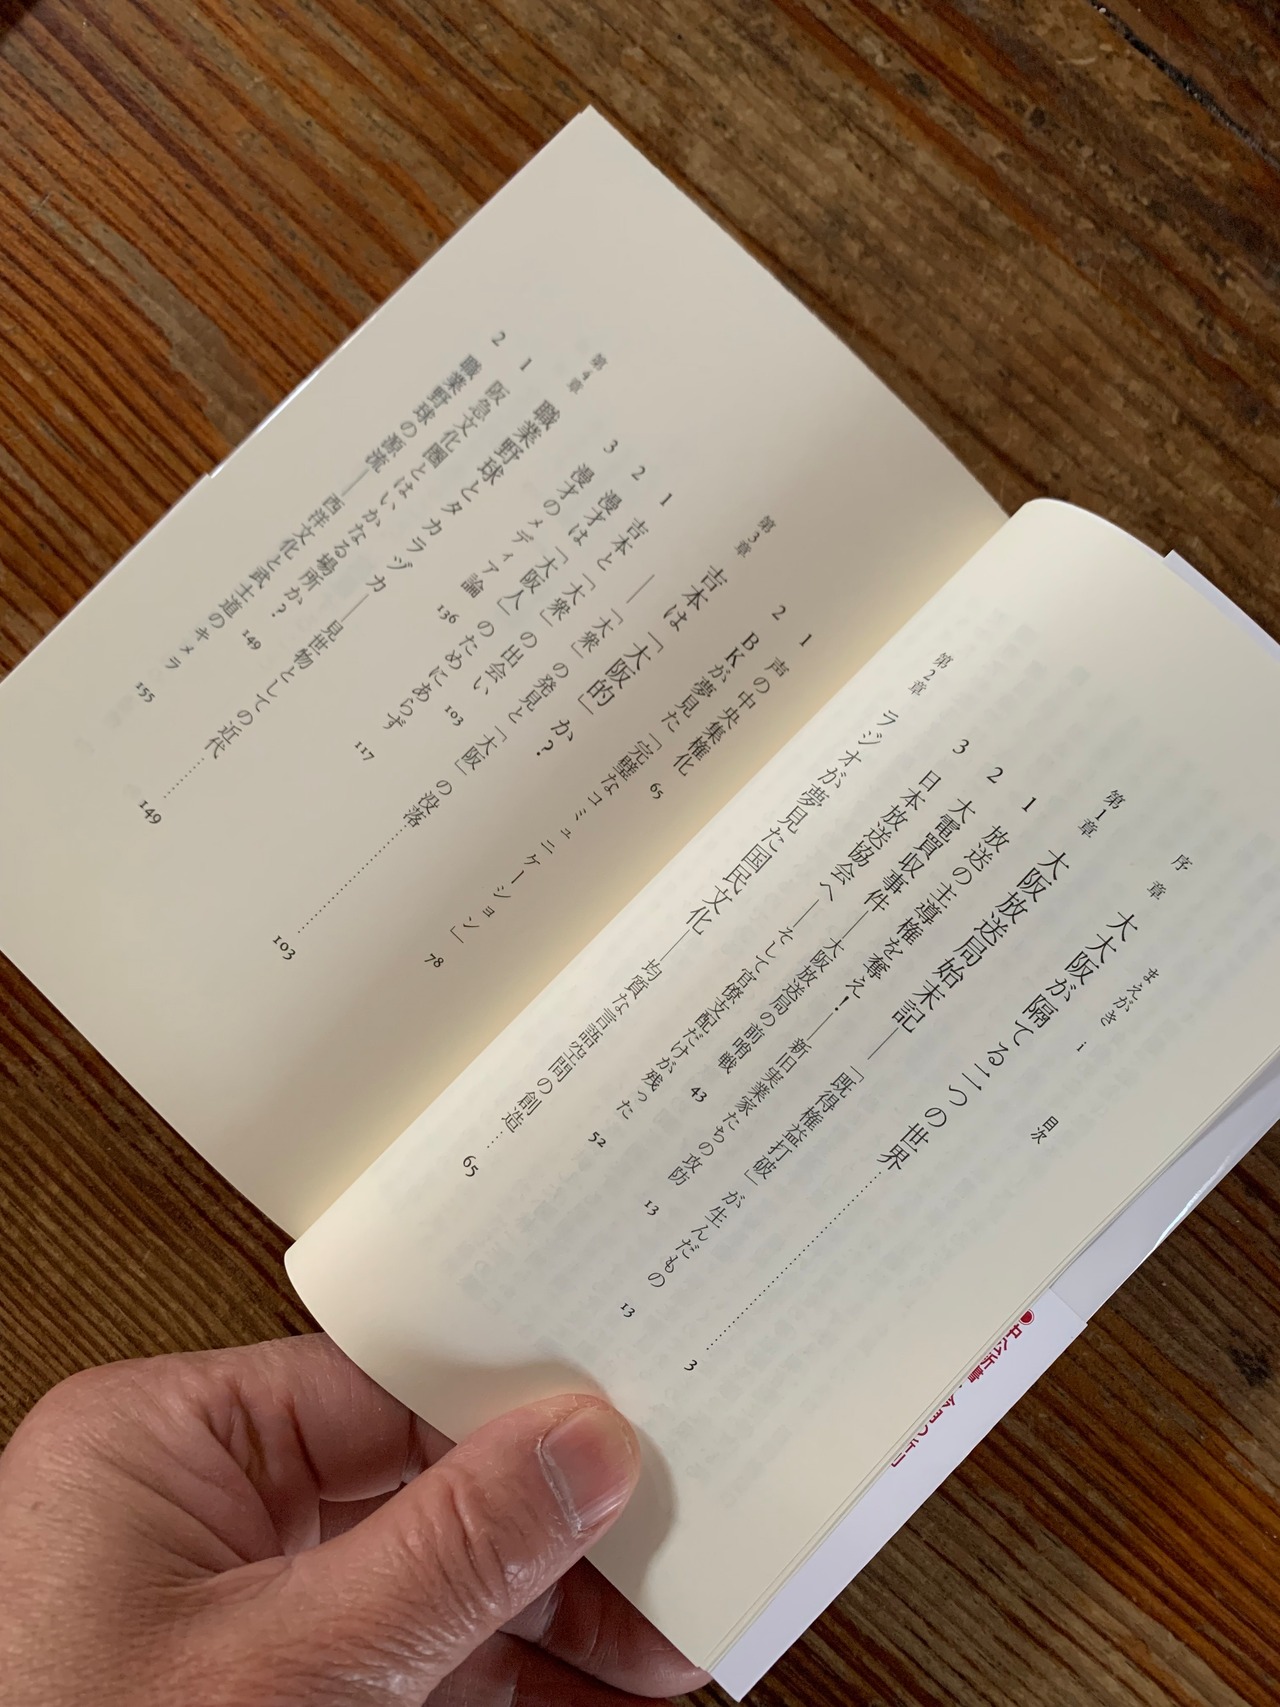 目次
まえがき i
序章 大大阪が隔てる二つの世界 3
第1章 大阪放送局始末記――「既得権益打破」が生んだもの 13
1 放送の主導権を奪え!――新旧実業家たちの攻防 13
2 大電買収事件――大阪放送局の前哨戦 43
3 日本放送協会へ――そして官僚支配だけが残った 52
第2章 ラジオが夢見た国民文化――均質な言語空間の創造 65
1 声の中央集権化 65
2 BKが夢見た「完璧なコミュニケーション」 78
第3章 吉本は「大阪的」か?――「大衆」の発見と「大阪」の没落 103
1 吉本と「大衆」の出会い 103
2 漫才は「大阪人」のためにあらず 117
3 漫才のメディア論 136
第4章 職業野球とタカラヅカ――見世物としての近代 149
1 阪急文化圏とはいかなる場所か? 149
2 職業野球の源流――西洋文化と武士道のキメラ 155